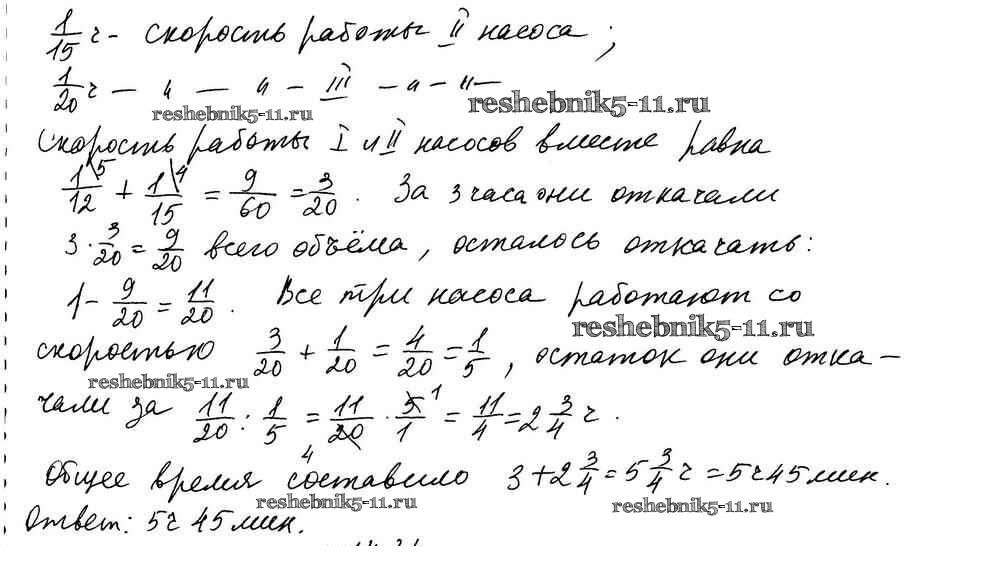 1/15 ч - скорость работы II насоса;
1/20 ч — 〃 — 〃 — III — 〃 — 〃 —
reshebnik5-11.ru reshebnik5-11.ru
Скорость работы I и II насосов вместе равна
1\5/12 + 1\4/15 = 9/60 = 3/20. За 3 часа они откачали
3 · 3/20 = 9/20 всего объёма, осталось откачать:
1 - 9/20 = 11/20. Все три насоса работают со
reshebnik5-11.ru
скоростью 3/20 + 1/20 = 4/20 = 1/5, остаток они отка-
reshebnik5-11.ru
чали за 11/20 : 1/5 = 11/20 4 · 5 1/1 = 11/4 = 2 3/4 ч.
Общее время составило 3 + 2 3/4 = 5 3/4 ч = 5 ч 45 мин.
reshebnik5-11.ru reshebnik5-11.ru
Ответ: 5 ч 45 мин.